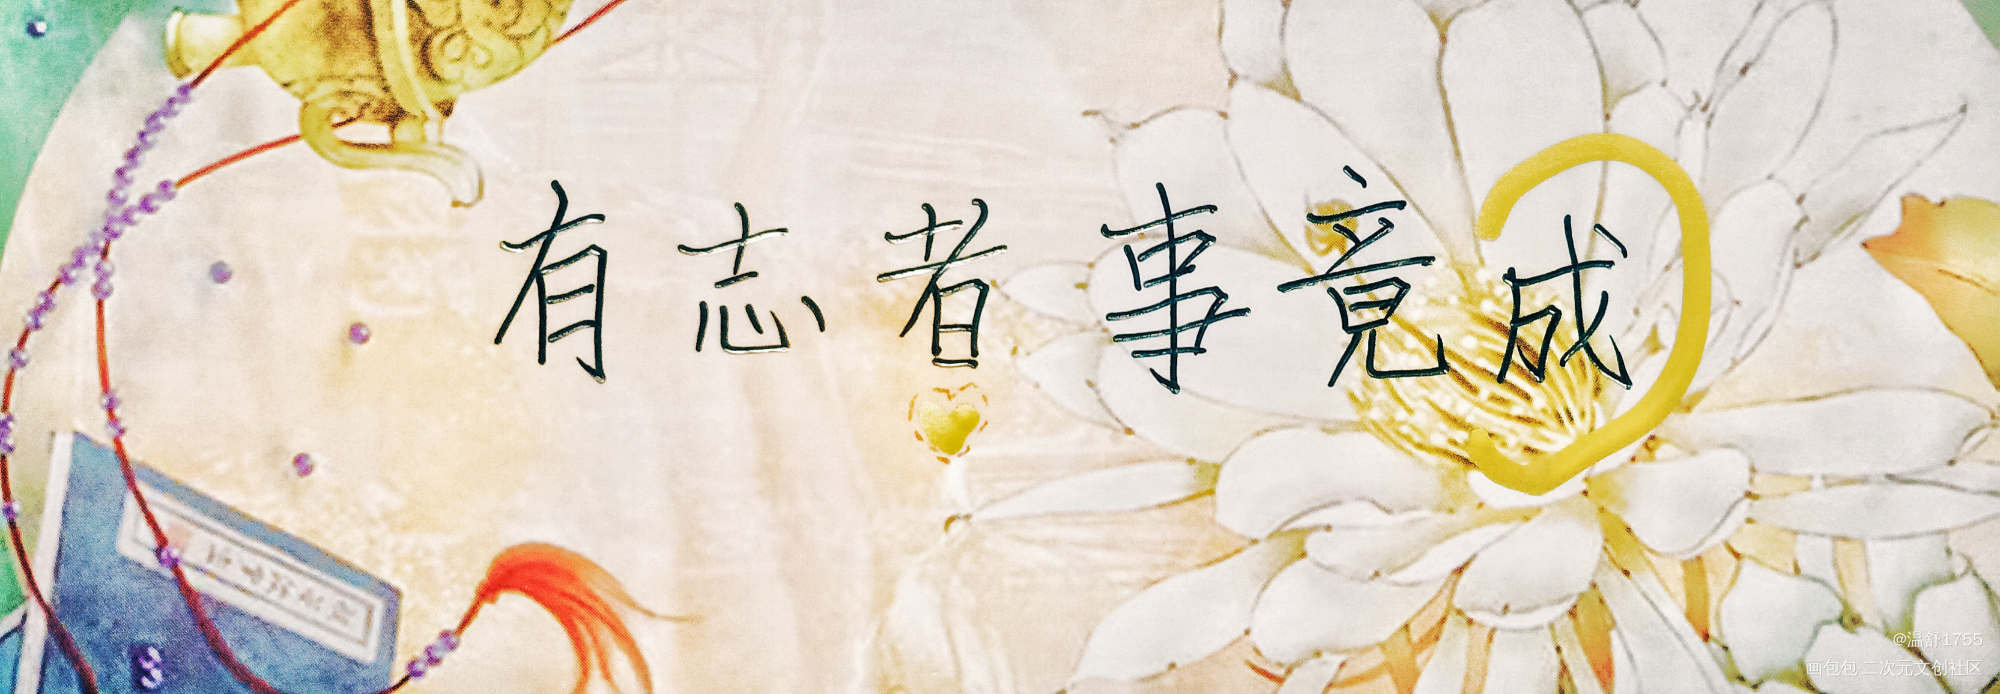 有志者事竟成
@温舒1755
画包包·二次元文创社区